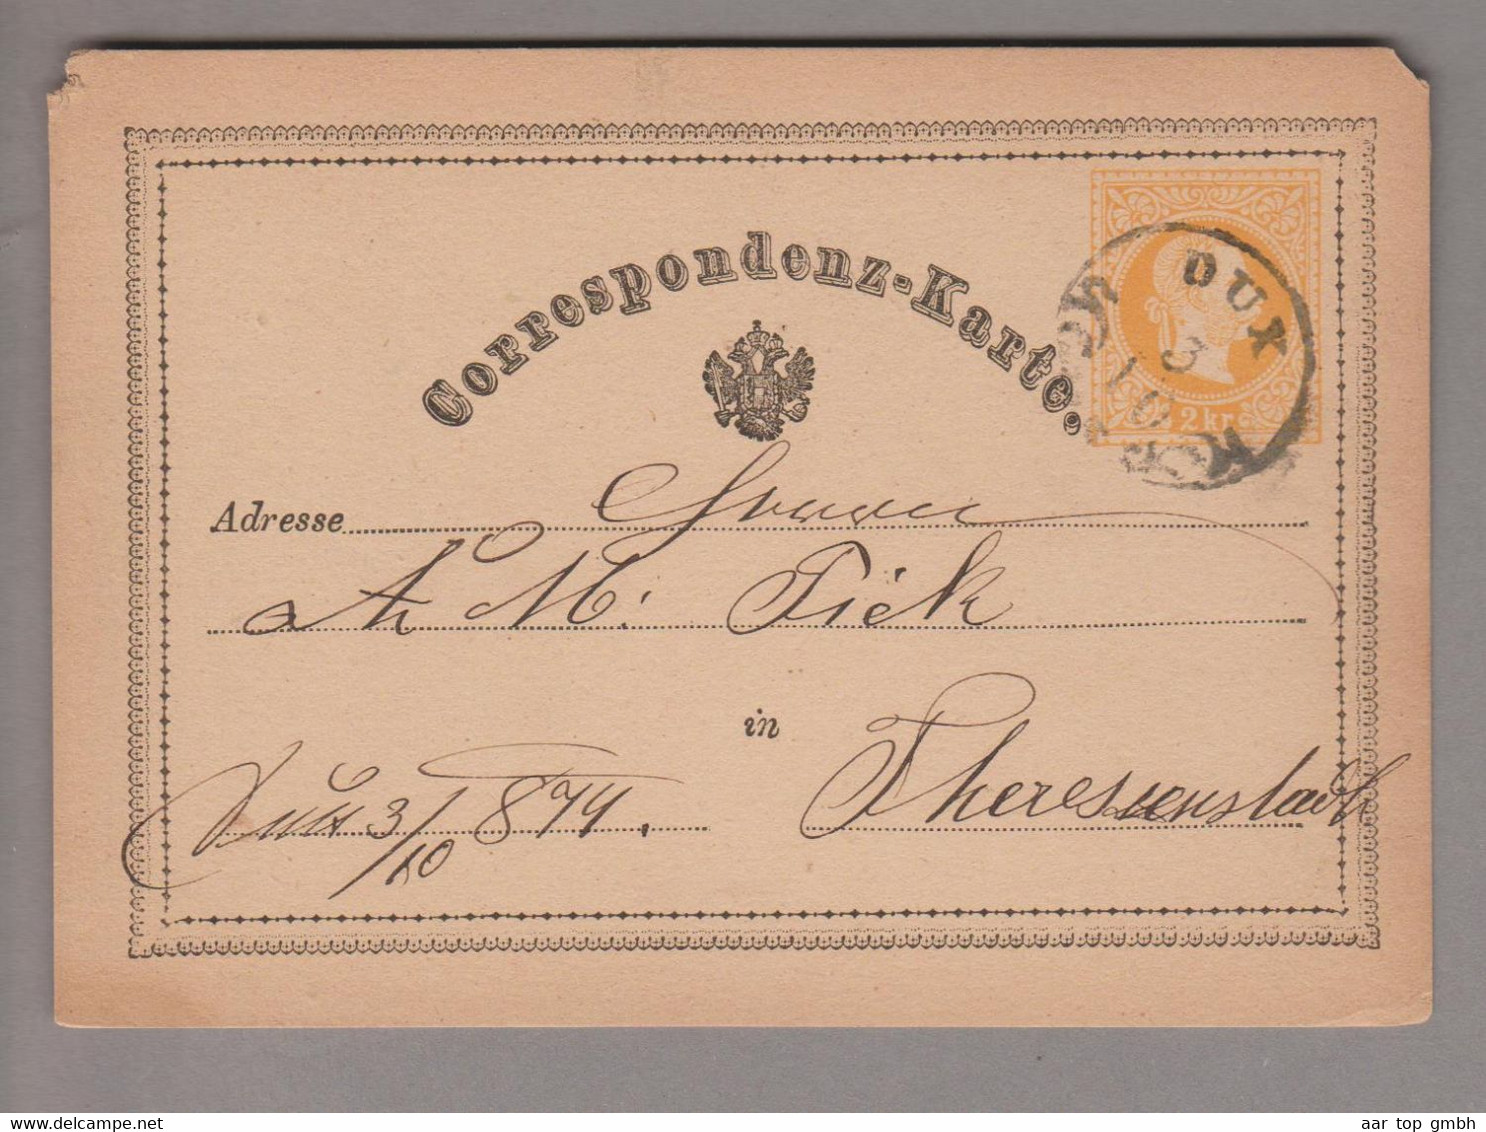 Correspondenz-Karte.
2 kr.
DUX
3
10
Adresse Herren
A. M. Pick
in
Dux 3/10 874.
Theresienstadt
aar top gmbh